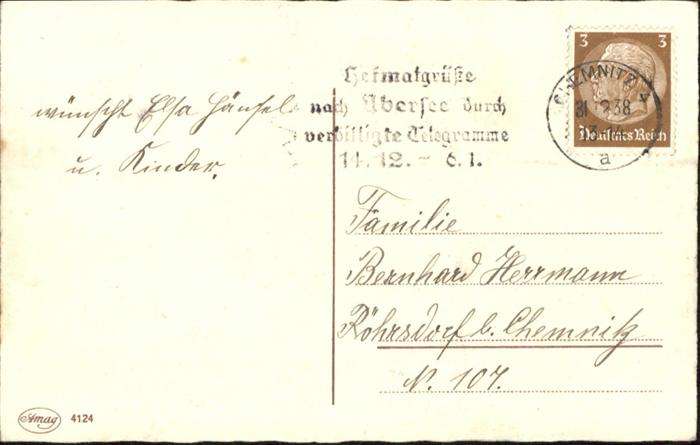 3 3
Deutsches Reich
CHEMNITZ
31.12.38
a
Heimatgrüße
nach Übersee durch
verbilligte Telegramme
14. 12. – 6. 1.
wünscht Elsa Hänsel
u. Kinder.
Familie
Bernhard Herrmann
Röhrsdorf b. Chemnitz
N. 107.
Amag 4124